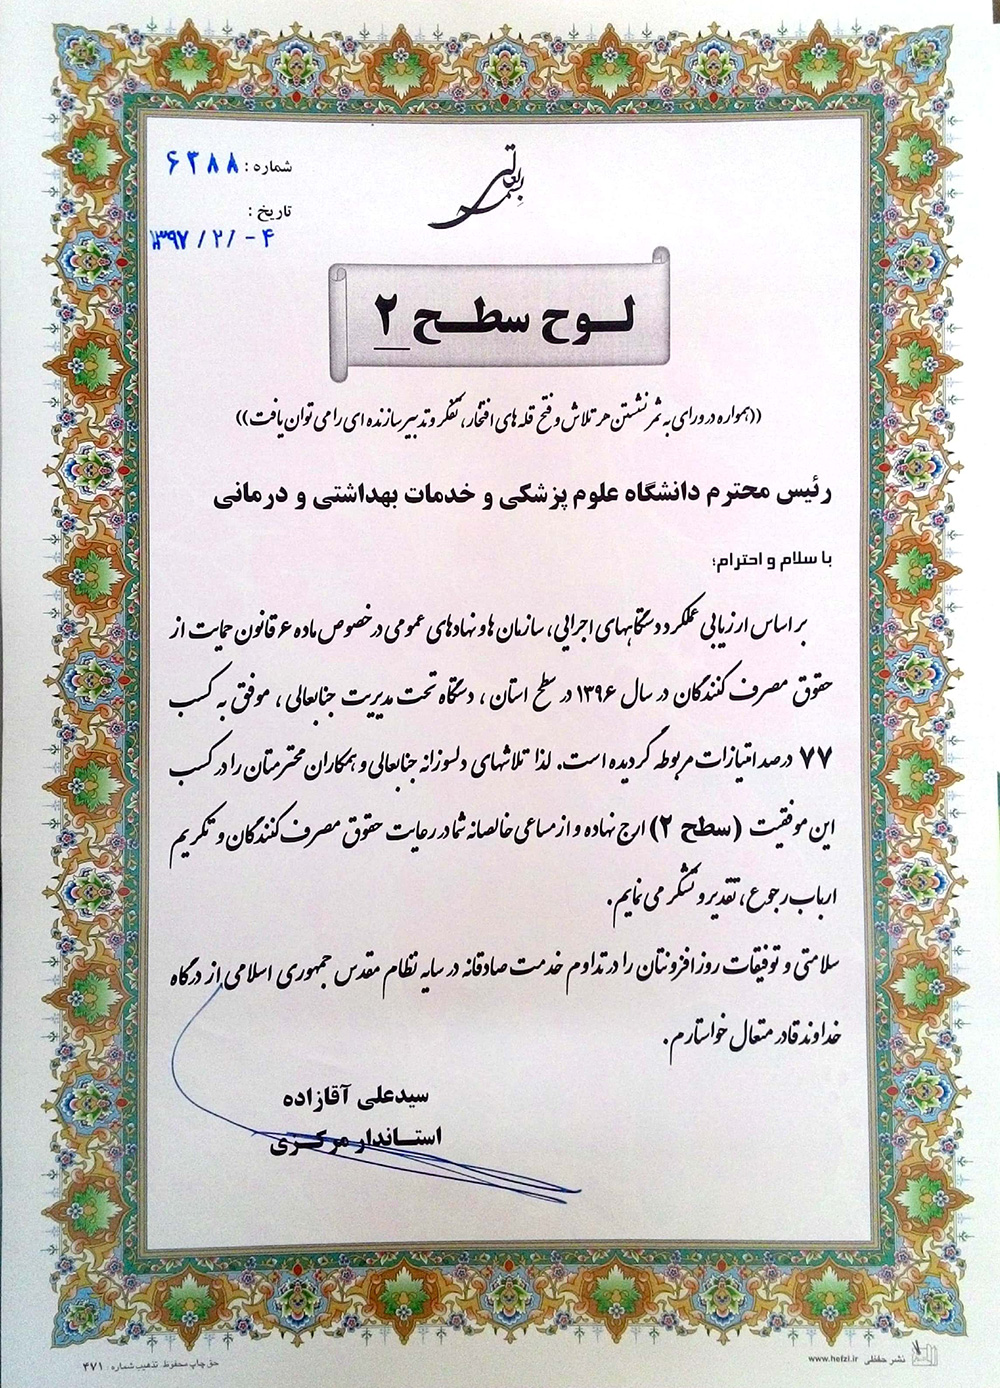 بسمه تعالی
شماره : ۶۳۸۸
تاریخ :
۱۳۹۷ / ۲ / ۰۴
لـوح سطـح ۲
((همواره در ورای به ثمر نشستن هر تلاش و فتح قله های افتخار، تفکر و تدبیر سازنده ای را می توان یافت))
رئیس محترم دانشگاه علوم پزشکی و خدمات بهداشتی و درمانی
با سلام و احترام؛
بر اساس ارزیابی عملکرد دستگاههای اجرایی، سازمان ها و نهادهای عمومی در خصوص ماده ۶ قانون حمایت از
حقوق مصرف کنندگان در سال ۱۳۹۶ در سطح استان ، دستگاه تحت مدیریت جنابعالی ، موفق به کسب
۷۷ درصد امتیازات مربوطه گردیده است. لذا تلاشهای دلسوزانه جنابعالی و همکاران محترمتان را در کسب
این موفقیت (سطح ۲) ارج نهاده و از مساعی خالصانه شما در رعایت حقوق مصرف کنندگان و تکریم
ارباب رجوع، تقدیر و تشکر می نمایم.
سلامتی و توفیقات روزافزونتان را در تداوم خدمت صادقانه در سایه نظام مقدس جمهوری اسلامی از درگاه
خداوند قادر متعال خواستارم.
سیدعلی آقازاده
استـاندار مرکـزی
نشر حفظی www.hefzi.ir
حق چاپ محفوظ. تذهیب شماره : ۴۷۱